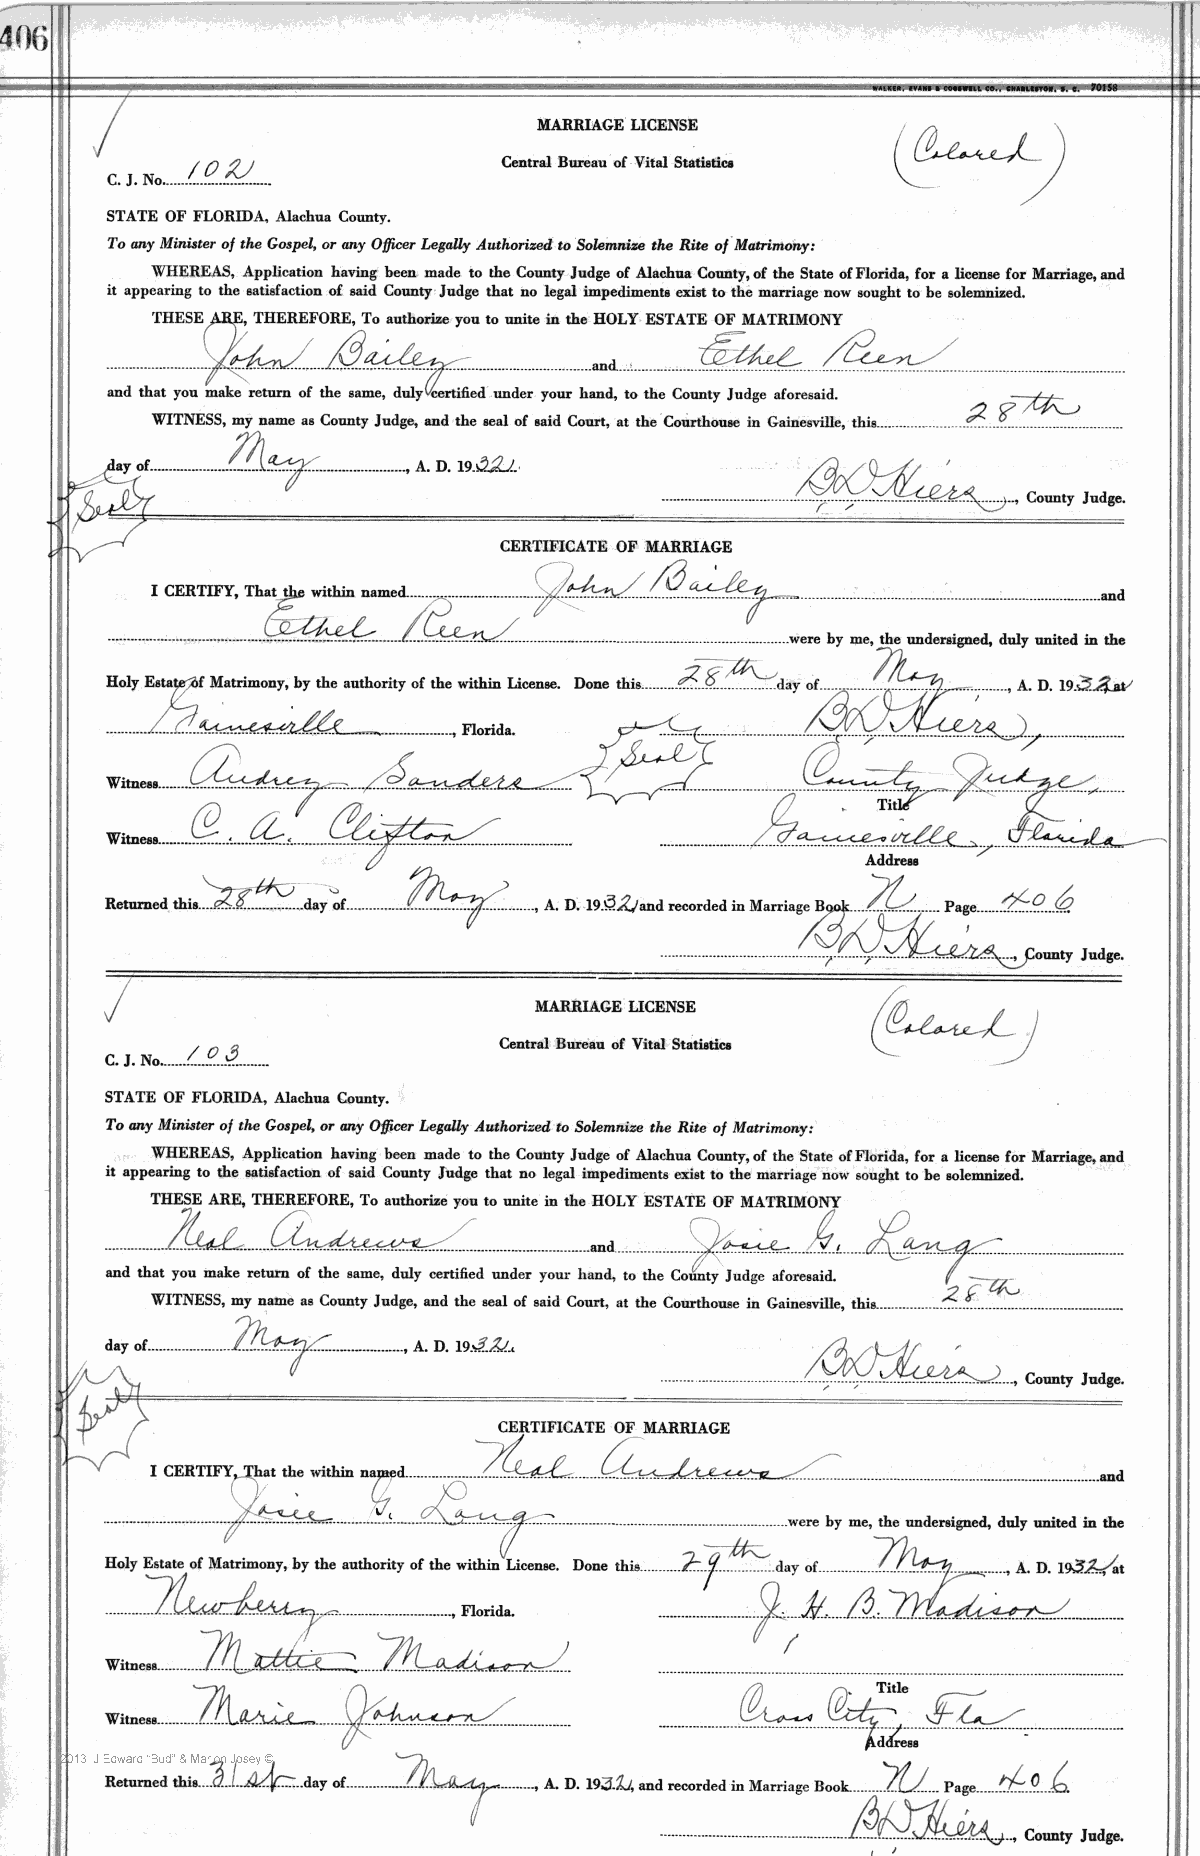 406
WALKER, EVANS & COGSWELL CO., CHARLESTON, S. C. 70158
MARRIAGE LICENSE
(Colored)
Central Bureau of Vital Statistics
C. J. No. 102
STATE OF FLORIDA, Alachua County.
To any Minister of the Gospel, or any Officer Legally Authorized to Solemnize the Rite of Matrimony:
WHEREAS, Application having been made to the County Judge of Alachua County, of the State of Florida, for a license for Marriage, and
it appearing to the satisfaction of said County Judge that no legal impediments exist to the marriage now sought to be solemnized.
THESE ARE, THEREFORE, To authorize you to unite in the HOLY ESTATE OF MATRIMONY
John Bailey and Ethel Reen
and that you make return of the same, duly certified under your hand, to the County Judge aforesaid.
WITNESS, my name as County Judge, and the seal of said Court, at the Courthouse in Gainesville, this 28th
day of May, A. D. 1932.
Seal
B D Hiers, County Judge.
CERTIFICATE OF MARRIAGE
I CERTIFY, That the within named John Bailey and
Ethel Reen were by me, the undersigned, duly united in the
Holy Estate of Matrimony, by the authority of the within License. Done this 28th day of May, A. D. 1932, at
Gainesville, Florida. B D Hiers,
Seal
Witness Audrey Sanders County Judge,
Title
Witness C. A. Clifton Gainesville, Florida
Address
Returned this 28th day of May, A. D. 1932, and recorded in Marriage Book N Page 406
B D Hiers, County Judge.
MARRIAGE LICENSE
(Colored)
Central Bureau of Vital Statistics
C. J. No. 103
STATE OF FLORIDA, Alachua County.
To any Minister of the Gospel, or any Officer Legally Authorized to Solemnize the Rite of Matrimony:
WHEREAS, Application having been made to the County Judge of Alachua County, of the State of Florida, for a license for Marriage, and
it appearing to the satisfaction of said County Judge that no legal impediments exist to the marriage now sought to be solemnized.
THESE ARE, THEREFORE, To authorize you to unite in the HOLY ESTATE OF MATRIMONY
Neal Andrews and Josie G. Lang
and that you make return of the same, duly certified under your hand, to the County Judge aforesaid.
WITNESS, my name as County Judge, and the seal of said Court, at the Courthouse in Gainesville, this 28th
day of May, A. D. 1932.
B D Hiers, County Judge.
Seal
CERTIFICATE OF MARRIAGE
I CERTIFY, That the within named Neal Andrews and
Josie G. Lang were by me, the undersigned, duly united in the
Holy Estate of Matrimony, by the authority of the within License. Done this 29th day of May, A. D. 1932, at
Newberry, Florida. J. H. B. Madison
Witness Mattie Madison
Title
Witness Marie Johnson Cross City, Fla
Address
2013 J Edward "Bud" & Marion Josey ©
Returned this 31st day of May, A. D. 1932, and recorded in Marriage Book N Page 406
B D Hiers, County Judge.